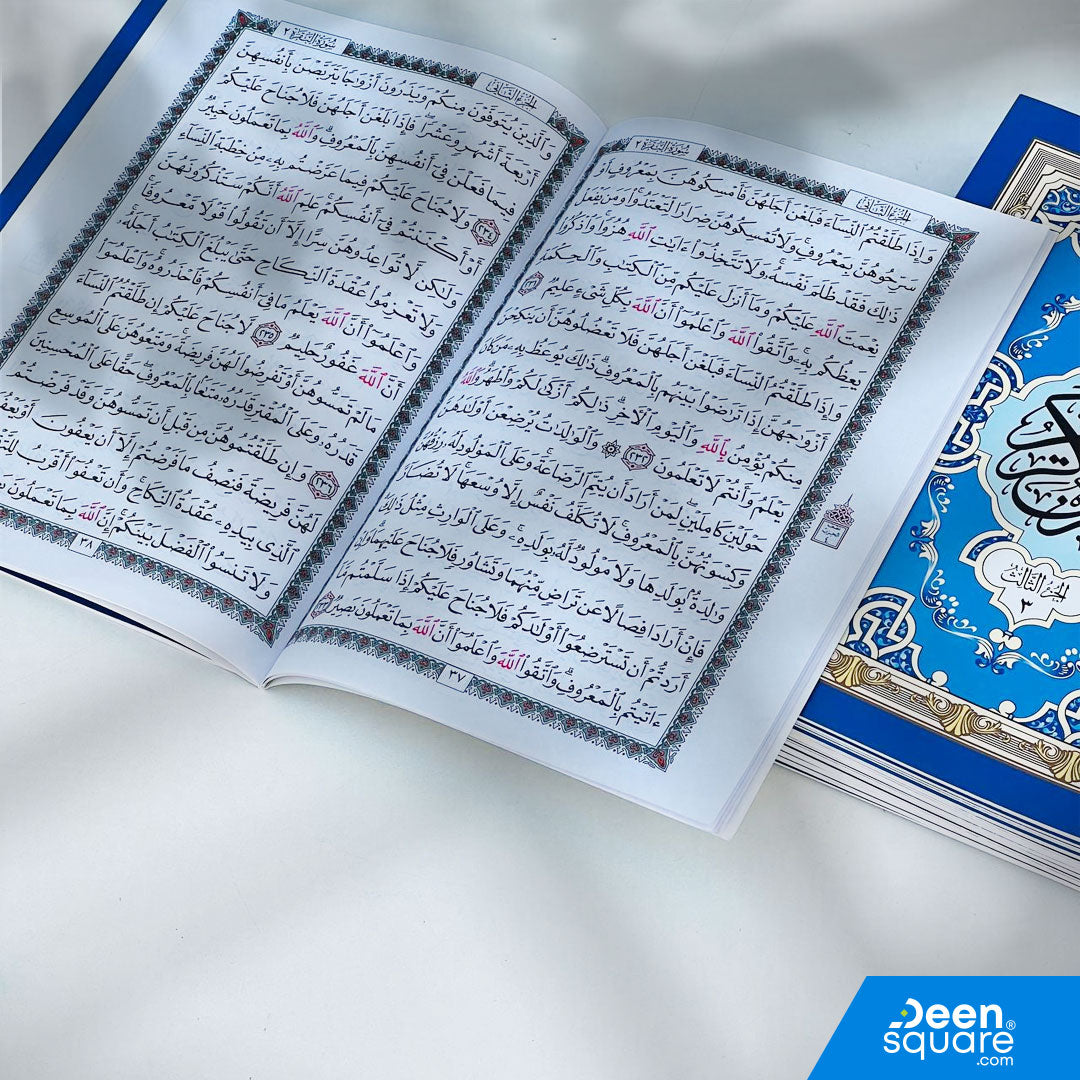 سُورَةُ البَقَرَةِ ٢
الجُزْءُ الثَّانِي
وَإِذَا طَلَّقْتُمُ ٱلنِّسَآءَ فَبَلَغْنَ أَجَلَهُنَّ فَأَمْسِكُوهُنَّ بِمَعْرُوفٍ أَوْ
سَرِّحُوهُنَّ بِمَعْرُوفٍ ۚ وَلَا تُمْسِكُوهُنَّ ضِرَارًا لِّتَعْتَدُوا۟ ۚ وَمَن يَفْعَلْ
ذَٰلِكَ فَقَدْ ظَلَمَ نَفْسَهُۥ ۚ وَلَا تَتَّخِذُوٓا۟ ءَايَٰتِ ٱللَّهِ هُزُوًا ۚ وَٱذْكُرُوا۟
نِعْمَتَ ٱللَّهِ عَلَيْكُمْ وَمَآ أَنزَلَ عَلَيْكُم مِّنَ ٱلْكِتَٰبِ وَٱلْحِكْمَةِ
يَعِظُكُم بِهِۦ ۚ وَٱتَّقُوا۟ ٱللَّهَ وَٱعْلَمُوٓا۟ أَنَّ ٱللَّهَ بِكُلِّ شَىْءٍ عَلِيمٌ ٢٣١
وَإِذَا طَلَّقْتُمُ ٱلنِّسَآءَ فَبَلَغْنَ أَجَلَهُنَّ فَلَا تَعْضُلُوهُنَّ أَن يَنكِحْنَ
أَزْوَٰجَهُنَّ إِذَا تَرَٰضَوْا۟ بَيْنَهُم بِٱلْمَعْرُوفِ ۗ ذَٰلِكَ يُوعَظُ بِهِۦ مَن كَانَ
مِنكُمْ يُؤْمِنُ بِٱللَّهِ وَٱلْيَوْمِ ٱلْءَاخِرِ ۗ ذَٰلِكُمْ أَزْكَىٰ لَكُمْ وَأَطْهَرُ ۗ وَٱللَّهُ
يَعْلَمُ وَأَنتُمْ لَا تَعْلَمُونَ ٢٣٢ ۞ وَٱلْوَٰلِدَٰتُ يُرْضِعْنَ أَوْلَٰدَهُنَّ
حَوْلَيْنِ كَامِلَيْنِ ۖ لِمَنْ أَرَادَ أَن يُتِمَّ ٱلرَّضَاعَةَ ۚ وَعَلَى ٱلْمَوْلُودِ لَهُۥ رِزْقُهُنَّ
وَكِسْوَتُهُنَّ بِٱلْمَعْرُوفِ ۚ لَا تُكَلَّفُ نَفْسٌ إِلَّا وُسْعَهَا ۚ لَا تُضَآرَّ
وَٰلِدَةٌۢ بِوَلَدِهَا وَلَا مَوْلُودٌ لَّهُۥ بِوَلَدِهِۦ ۚ وَعَلَى ٱلْوَارِثِ مِثْلُ ذَٰلِكَ
فَإِنْ أَرَادَا فِصَالًا عَن تَرَاضٍ مِّنْهُمَا وَتَشَاوُرٍ فَلَا جُنَاحَ عَلَيْهِمَا ۗ وَإِنْ
أَرَدتُّمْ أَن تَسْتَرْضِعُوٓا۟ أَوْلَٰدَكُمْ فَلَا جُنَاحَ عَلَيْكُمْ إِذَا سَلَّمْتُم مَّآ
ءَاتَيْتُم بِٱلْمَعْرُوفِ ۗ وَٱتَّقُوا۟ ٱللَّهَ وَٱعْلَمُوٓا۟ أَنَّ ٱللَّهَ بِمَا تَعْمَلُونَ بَصِيرٌ ٢٣٣
٣٧
سُورَةُ البَقَرَةِ ٢
الجُزْءُ الثَّانِي
وَٱلَّذِينَ يُتَوَفَّوْنَ مِنكُمْ وَيَذَرُونَ أَزْوَٰجًا يَتَرَبَّصْنَ بِأَنفُسِهِنَّ
أَرْبَعَةَ أَشْهُرٍ وَعَشْرًا ۖ فَإِذَا بَلَغْنَ أَجَلَهُنَّ فَلَا جُنَاحَ عَلَيْكُمْ
فِيمَا فَعَلْنَ فِىٓ أَنفُسِهِنَّ بِٱلْمَعْرُوفِ ۗ وَٱللَّهُ بِمَا تَعْمَلُونَ خَبِيرٌ
٢٣٤ وَلَا جُنَاحَ عَلَيْكُمْ فِيمَا عَرَّضْتُم بِهِۦ مِنْ خِطْبَةِ ٱلنِّسَآءِ
أَوْ أَكْنَنتُمْ فِىٓ أَنفُسِكُمْ ۚ عَلِمَ ٱللَّهُ أَنَّكُمْ سَتَذْكُرُونَهُنَّ
وَلَٰكِن لَّا تُوَاعِدُوهُنَّ سِرًّا إِلَّآ أَن تَقُولُوا۟ قَوْلًا مَّعْرُوفًا
وَلَا تَعْزِمُوا۟ عُقْدَةَ ٱلنِّكَاحِ حَتَّىٰ يَبْلُغَ ٱلْكِتَٰبُ أَجَلَهُۥ
وَٱعْلَمُوٓا۟ أَنَّ ٱللَّهَ يَعْلَمُ مَا فِىٓ أَنفُسِكُمْ فَٱحْذَرُوهُ ۚ وَٱعْلَمُوٓا۟
أَنَّ ٱللَّهَ غَفُورٌ حَلِيمٌ ٢٣٥ لَّا جُنَاحَ عَلَيْكُمْ إِن طَلَّقْتُمُ ٱلنِّسَآءَ
مَا لَمْ تَمَسُّوهُنَّ أَوْ تَفْرِضُوا۟ لَهُنَّ فَرِيضَةً ۚ وَمَتِّعُوهُنَّ عَلَى ٱلْمُوسِعِ
قَدَرُهُۥ وَعَلَى ٱلْمُقْتِرِ قَدَرُهُۥ مَتَٰعًۢا بِٱلْمَعْرُوفِ ۖ حَقًّا عَلَى ٱلْمُحْسِنِينَ
٢٣٦ وَإِن طَلَّقْتُمُوهُنَّ مِن قَبْلِ أَن تَمَسُّوهُنَّ وَقَدْ فَرَضْتُمْ
لَهُنَّ فَرِيضَةً فَنِصْفُ مَا فَرَضْتُمْ إِلَّآ أَن يَعْفُونَ أَوْ
ٱلَّذِى بِيَدِهِۦ عُقْدَةُ ٱلنِّكَاحِ ۚ وَأَن تَعْفُوٓا۟ أَقْرَبُ
وَلَا تَنسَوُا۟ ٱلْفَضْلَ بَيْنَكُمْ ۚ إِنَّ ٱللَّهَ بِمَا تَعْمَلُونَ
٣٨
الجُزْءُ الثَّالِثُ
٣
Deen
square®
.com